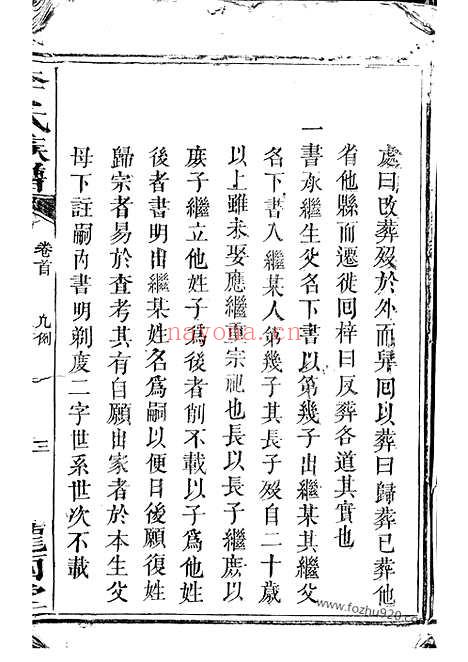 處曰改葬歿於外而舁回以葬曰歸葬已葬他
省他縣而遷徙回梓曰反葬各道其實也
一書承繼生父名下書以第幾子出繼某其繼父
名下書入繼某人第幾子其長子歿自二十歲
以上雖未娶應繼重宗祀也長以長子繼庶以
庶子繼立他姓子為後者削不載以子為他姓
後者書明出繼某姓名為嗣以便日後願復姓
歸宗者易於查考其有自願出家者於本生父
母下註嗣內書明剃度二字世系世次不載
李氏族譜
卷首
凡例
三
nayona.cn
www.fozhu920.com